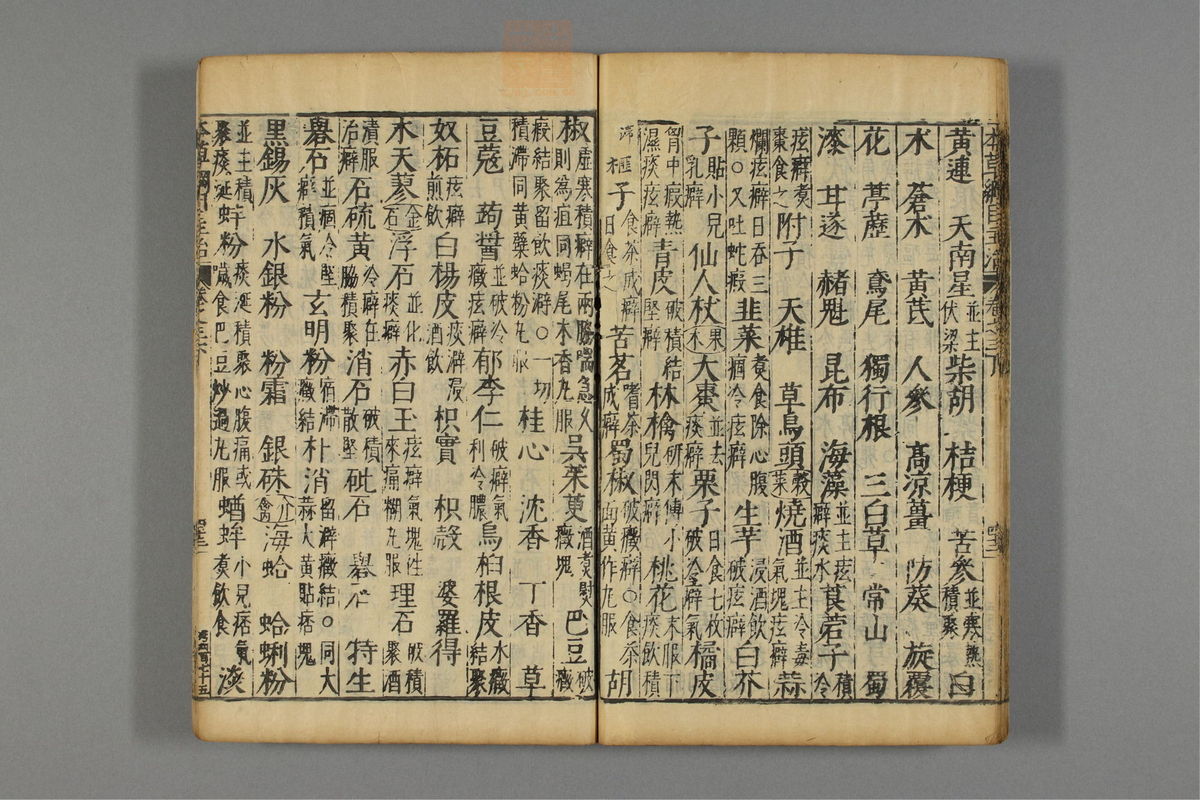 黄連 天南星並主伏梁柴胡 桔梗 苦參並寒熱積聚白
朮 蒼朮 黄芪 人參 高涼薑 防葵 旋覆
花 葶藶 鳶尾 獨行根 三白草 常山 蜀
漆 甘遂 赭魁 昆布 海藻並主痃癖痰水莨菪子積冷
痃癖煮棗食之附子 天雄 草烏頭穀菜燒酒並主冷毒氣塊痃癖蒜
爛痃癖日吞三顆○又吐蛇瘕韭菜煮食除心腹痼冷痃癖生芋浸酒飲破痃癖白芥
子貼小兒乳癖仙人杖果木大棗並去痰癖栗子日食七枚破冷癖氣橘皮
胷中瘕熱濕痰痃癖青皮破積結堅癖林檎研末傅小兒閃癖桃花末服下痰飲積
滯榧子食茶成癖日食之苦茗嗜茶成癖蜀椒破癥癖○食茶面黄作丸服胡
椒虛寒積癖在兩脇喘急久則為疽同蝎尾木香丸服吳茱萸酒煮熨癥塊巴豆破癥
瘕結聚留飲痰澼○一切積滯同黄蘗蛤粉丸服桂心 沈香 丁香 草
豆蔻 蒟醬並破冷癥痃癖郁李仁破癖氣利冷膿烏桕根皮水癥結聚
奴柘痃癖煎飲白楊皮痰澼浸酒飲枳實 枳殼 婆羅得
木天蓼金石浮石並化痰癖赤白玉痃癖氣塊往來痛糊丸服理石破積聚酒
漬服治癖石硫黄冷癖在脇積聚消石破積散堅砒石 礜石 特生
礜石並痼冷堅癖積氣玄明粉宿滯癥結朴消留澼癥結○同大蒜大黄貼痞塊
黑錫灰 水銀粉 粉霜 銀硃介禽海蛤 蛤蜊粉
並主積聚痰涎蚌粉痰涎積聚心腹痛或噦食巴豆炒過丸服蝤蛑小兒痞氣煮飲食淡